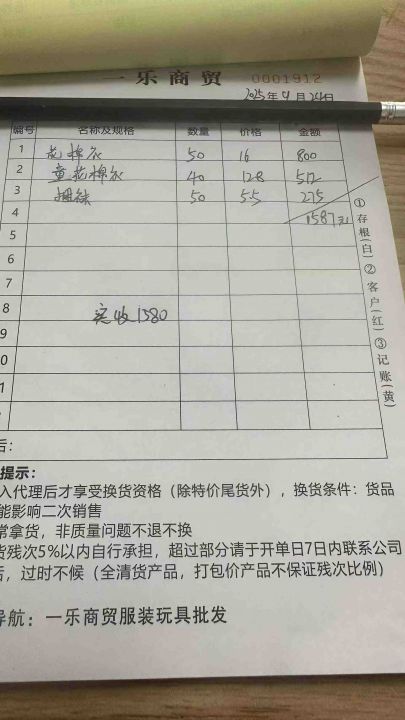 一乐商贸 0001912
2025年4月24日
编号 名称及规格 数量 价格 金额
1 花棉衣 50 16 800
2 童花棉衣 40 12.8 512
3 50 5.5 275
4 1587元
5
6
7
8 实收1580
9
0
1
后：
提示：
入代理后才享受换货资格（除特价尾货外），换货条件：货品
能影响二次销售
常拿货，非质量问题不退不换
货残次5%以内自行承担，超过部分请于开单日7日内联系公司
后，过时不候（全清货产品，打包价产品不保证残次比例）
导航：一乐商贸服装玩具批发
①存根(白)②客户(红)③记账(黄)